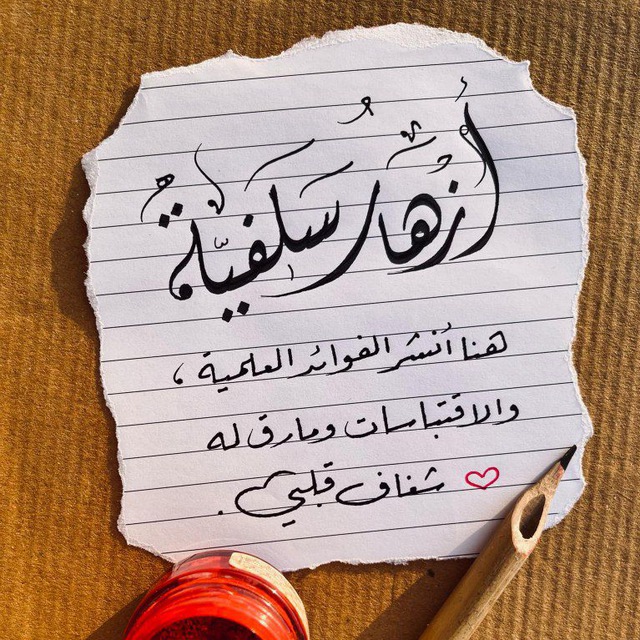 أزهار سلفية
هنا أنشر الفوائد العلمية ،
والاقتباسات ومارق له
شغاف قلبي .